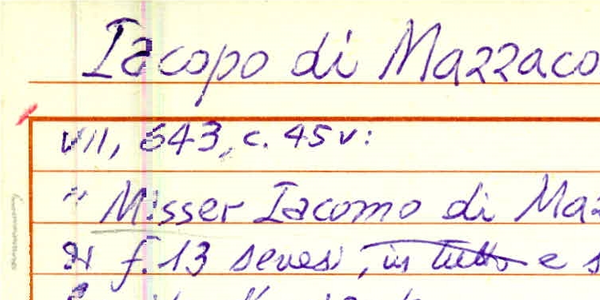 Iacopo di Mazzaco
VII, 643, c. 45v:
" Misser Iacomo di Maz
f. 13 senesi, in tutto e s